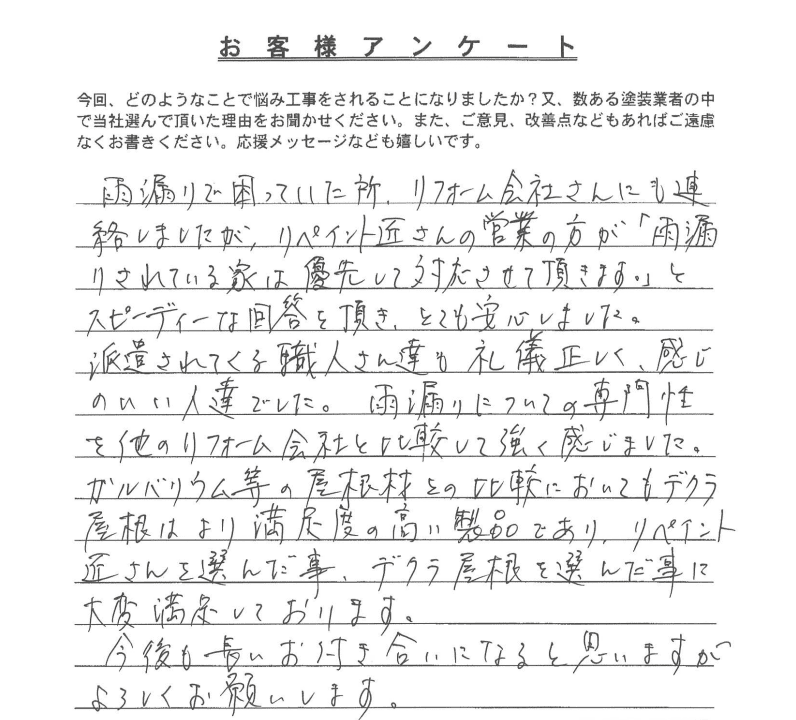 お客様アンケート
今回、どのようなことで悩み工事をされることになりましたか？又、数ある塗装業者の中
で当社選んで頂いた理由をお聞かせください。また、ご意見、改善点などもあればご遠慮
なくお書きください。応援メッセージなども嬉しいです。
雨漏りで困っていた所、リフォーム会社さんにも連
絡しましたが、リペイント匠さんの営業の方が「雨漏
りされている家は優先して対応させて頂きます。」と
スピーディーな回答を頂き、とても安心しました。
派遣されてくる職人さん達も礼儀正しく、感じ
のいい人達でした。雨漏りについての専門性
を他のリフォーム会社と比較して強く感じました。
ガルバリウム等の屋根材との比較においてもデクラ
屋根はより満足度の高い製品であり、リペイント
匠さんを選んだ事、デクラ屋根を選んだ事に
大変満足しております。
今後も長いお付き合いになると思いますが
よろしくお願いします。